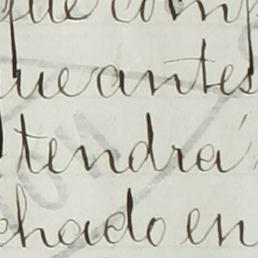 que comp
que antes
tendrá
chado en